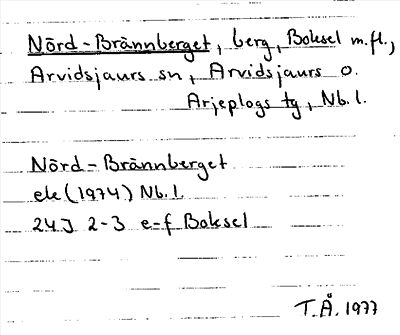 Nörd-Brännberget, berg, Boksel m.fl.,
Arvidsjaurs sn, Arvidsjaurs o.
Arjeplogs tg, Nb.l.
Nörd-Brännberget
ek (1974) Nb.l.
24J 2-3 e-f Boksel
T.Å. 1977